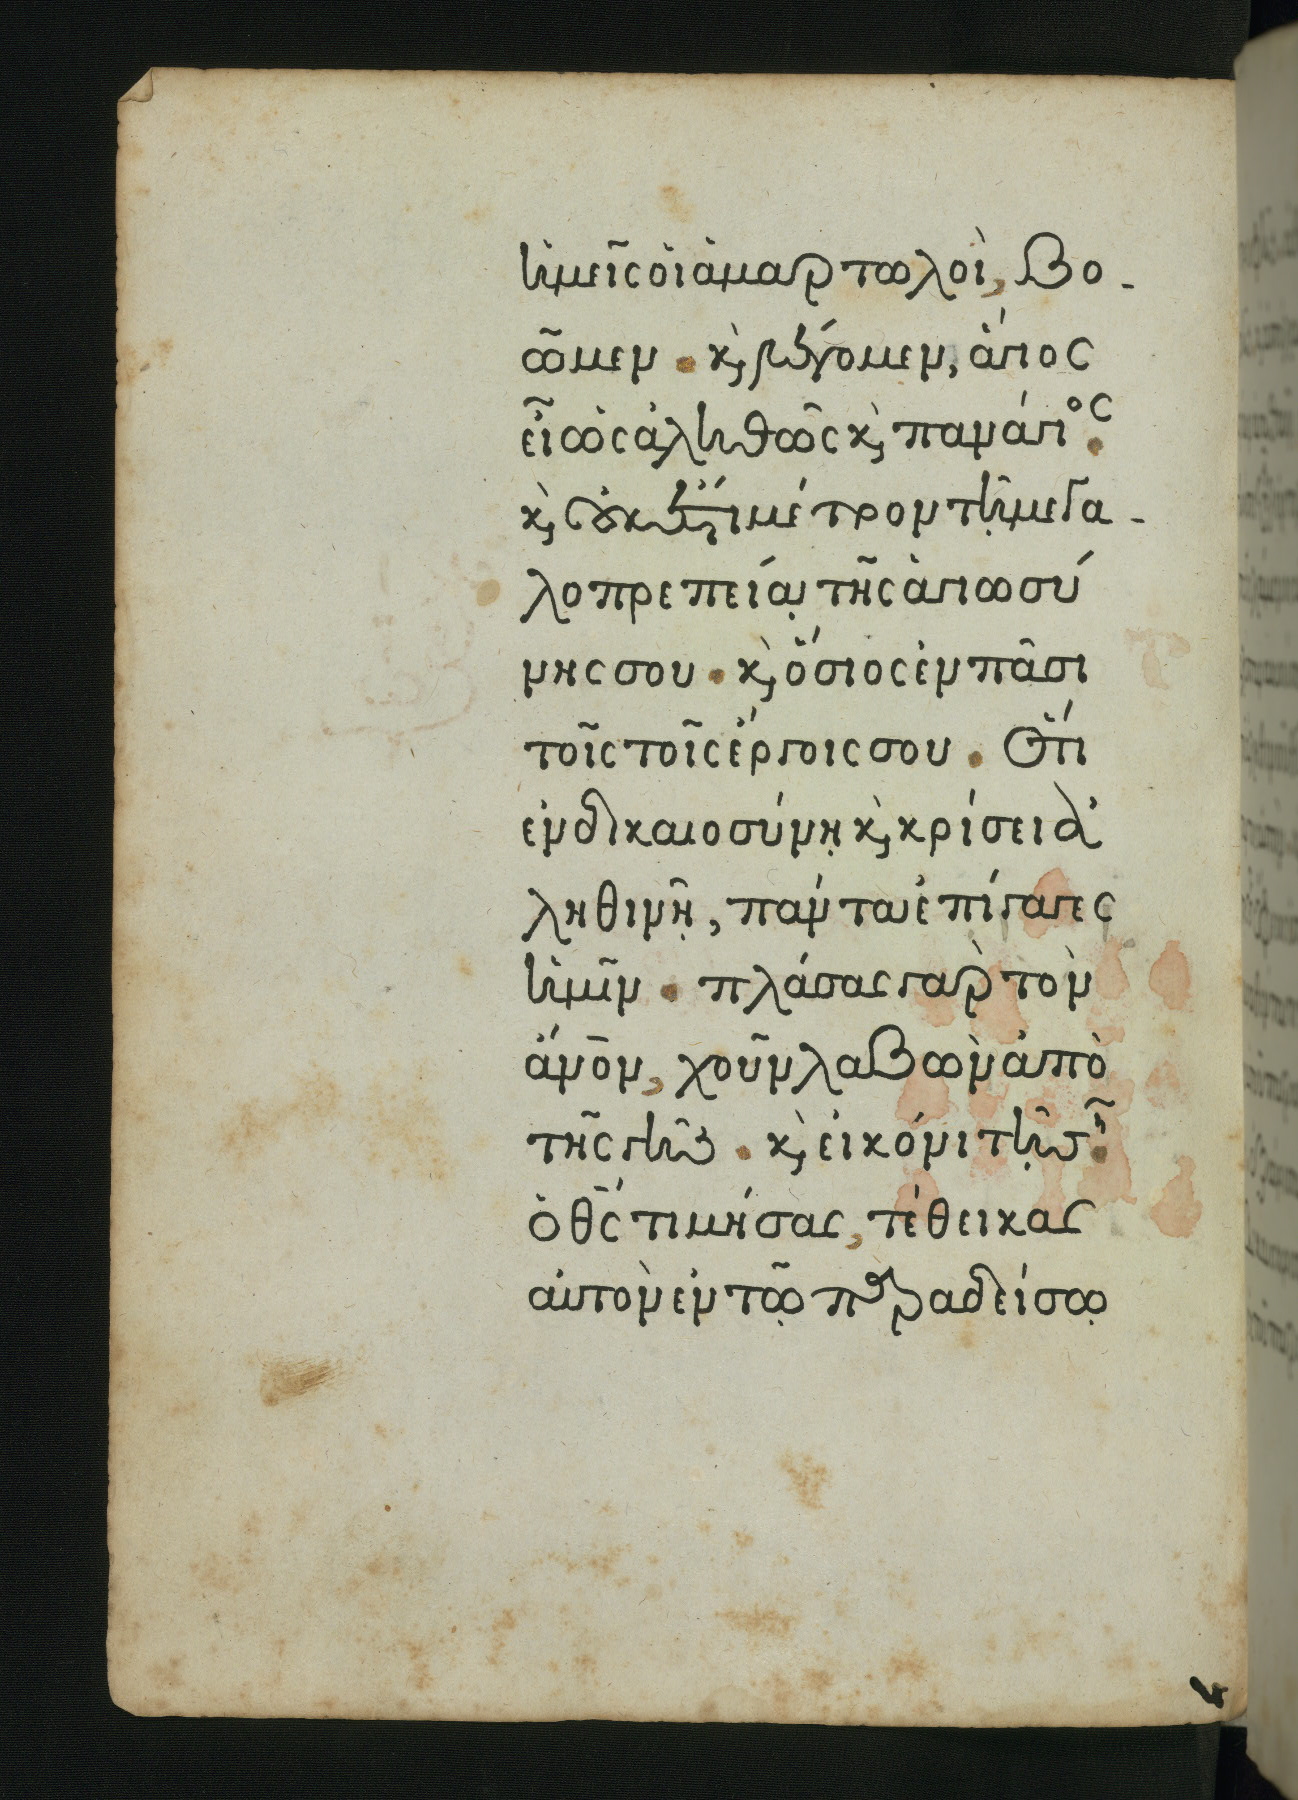 ἡμεῖς οἱ ἁμαρτωλοὶ, βο-
ῶμεν . κ̀ λέγομεν, ἅγιος
εἶ ὡς ἀληθῶς κ̀ πανάγιος .
κ̀ οὐκ ἔστι μέτρον τῆ μεγα-
λοπρεπείᾳ τῆς ἁγιωσύ
νης σου . κ̀ ὅσιος ἐν πᾶσι
τοῖς τοῖς ἔργοις σου . Ὅτι
ἐν δικαιοσύνῃ κ̀ κρίσει ἀ
ληθινῇ, πάντα ἐπήγαγες
ἡμῖν . πλάσας γὰρ τὸν
ἄνο̅ν, χοῦν λαβὼν ἀπὸ
τῆς γῆς . κ̀ εἰκόνι τῇ σῇ .
ὁ θς̅ τιμήσας, τέθεικας
αὐτὸν ἐν τῷ παραδείσῳ